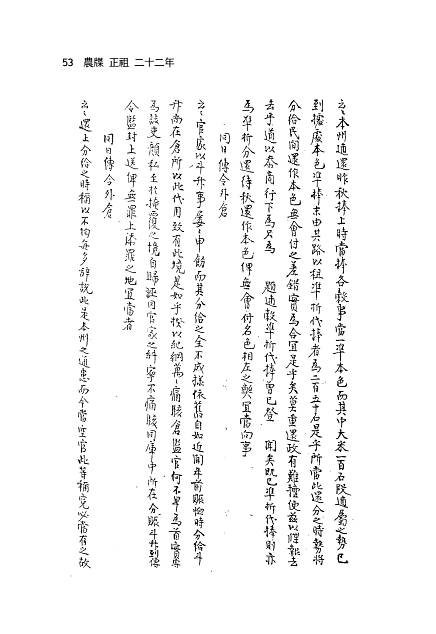 53 農牒 正祖 二十二年
云云本州通還昨秋捧上時當捧各穀事當一準本色而其中大米一百石段之勢已
到據處本色準捧末由以租準折代捧者爲二百五十石是乎所當此還分之時勢將
分給民間還作本色無會付之差錯實爲合宜是乎矣莫重還政有難擅便茲以牒報去
去乎道以參商行下爲只爲 題 通穀準折代捧曾已登 聞矣既已準折代捧則亦
爲準折分還待秋還作本色俾無會付名色相左之弊宜當向事
同日傳令外倉
云云官家以斗升事屢屢申飭而其分給之全不成樣依舊自如近聞年前賑恤時分給斗
升尚在倉所以此代用致有此境是如乎揆以紀綱萬萬痛駭倉監官何不早爲首實
爲該吏顔私至於掩覆之境自歸誣罔官家之科寧不痛駭同庫中所在分賑斗升到傳
令監封上送俾無罪上添罪之地宜當者
同日傳令外倉
云云還上分給之時稱以不均每多辭說此是本州之通患而今當空官此等稱冤必當有之故